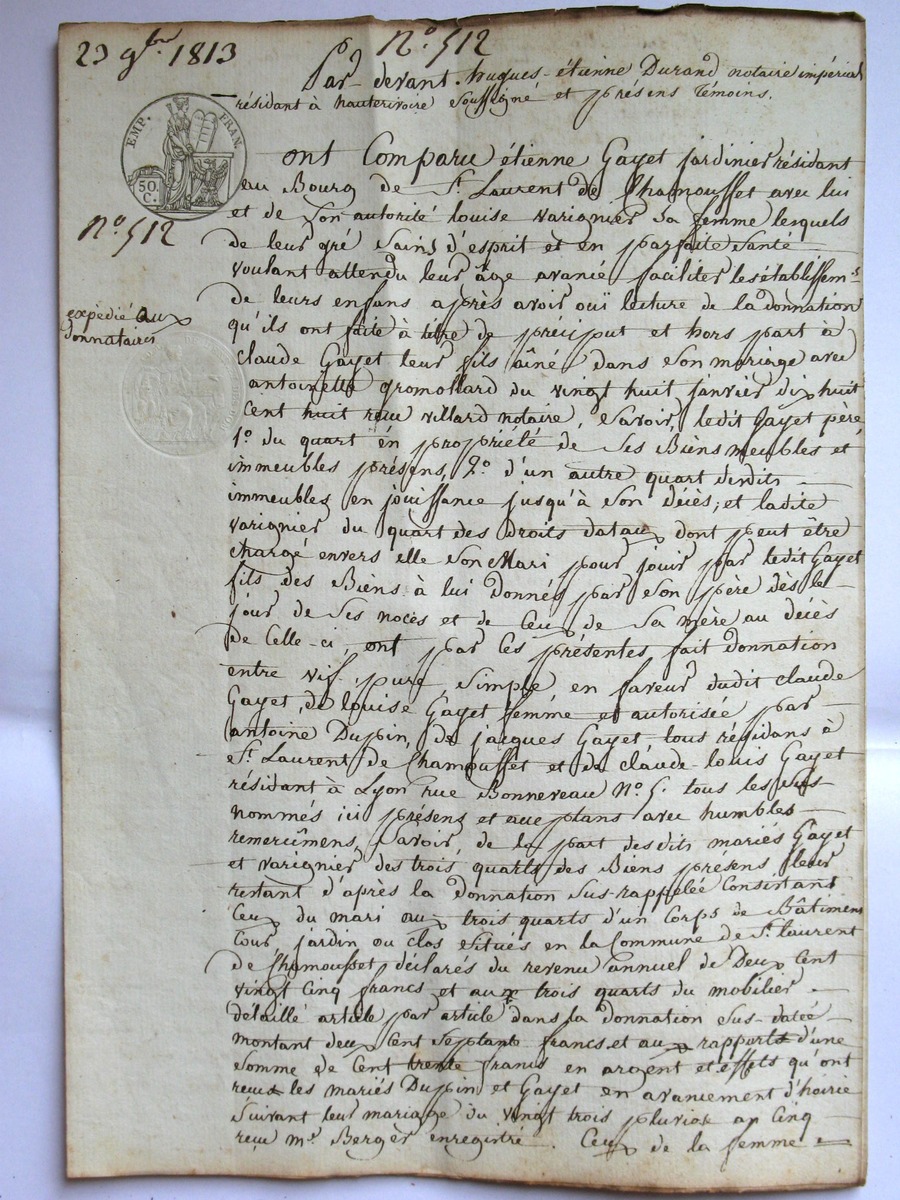 23 9bre 1813
N.o 512
Par-devant hugues-étienne Durand notaire impérial
résidant à hauterivoire soussigné et présens témoins.
EMP. FRAN.
50. C.
N.o 512
expédié aux
donnataires
ont Comparu étienne Gayet jardinier résidant
au Bourg de St. Laurent de Chamousset avec lui
et de son autorité louise varignier sa femme lesquels
de leur gré sains d'esprit et en parfaite santé
voulant attendu leur âge avancé faciliter les établissem.s
de leurs enfans après avoir ouï lecture de la donnation
qu'ils ont faite à titre de préciput et hors part à
claude Gayet leur fils aîné dans son mariage avec
antoinette gromollard du vingt huit janvier dix huit
Cent huit reçu villard notaire, savoir, ledit Gayet père
1.o du quart en propriété de ses Biens meubles et
immeubles présens, 2.o d'un autre quart desdits
immeubles en jouissance jusqu'à son décès, et ladite
varignier du quart des droits dataux dont peut être
chargé envers elle son Mari pour jouir par ledit Gayet
fils des Biens à lui donnés par son père dès le
jour de ses noces et de Ceux de sa mère au décès
de Celle-ci, ont par ces présentes fait donnation
entre vif, pure, simple, en faveur dudit claude
Gayet, de louise Gayet femme et autorisée par
antoine Dupin, de jacques Gayet tous résidans à
St. Laurent de Chamousset et de claude-louis Gayet
résidant à Lyon rue Bonneveau N.o 5. tous les sus
nommés ici présens et aceptans avec humbles
remercîmens, Savoir, de la part desdits mariés Gayet
et varignier des trois quarts des Biens présens leur
restant d'après la donnation sus-rappelée Consistant
Ceux du mari aux trois quarts d'un Corps de Bâtimens
Cour, jardin ou clos situés en la Commune de St. laurent
de Chamousset, déclarés du revenu annuel de Deux Cent
vingt Cinq francs et aux trois quarts du mobilier
détaillé article par article dans la donnation sus-datée
montant deux Cent septante francs et aux rapports d'une
somme de Cent trente francs en argent et effets qu'ont
reçus les mariés Dupin et Gayet en avancement d'hoirie
suivant leur mariage du vingt trois pluviose an Cinq
reçu m.e Berger enregistré. Ceux de la femme